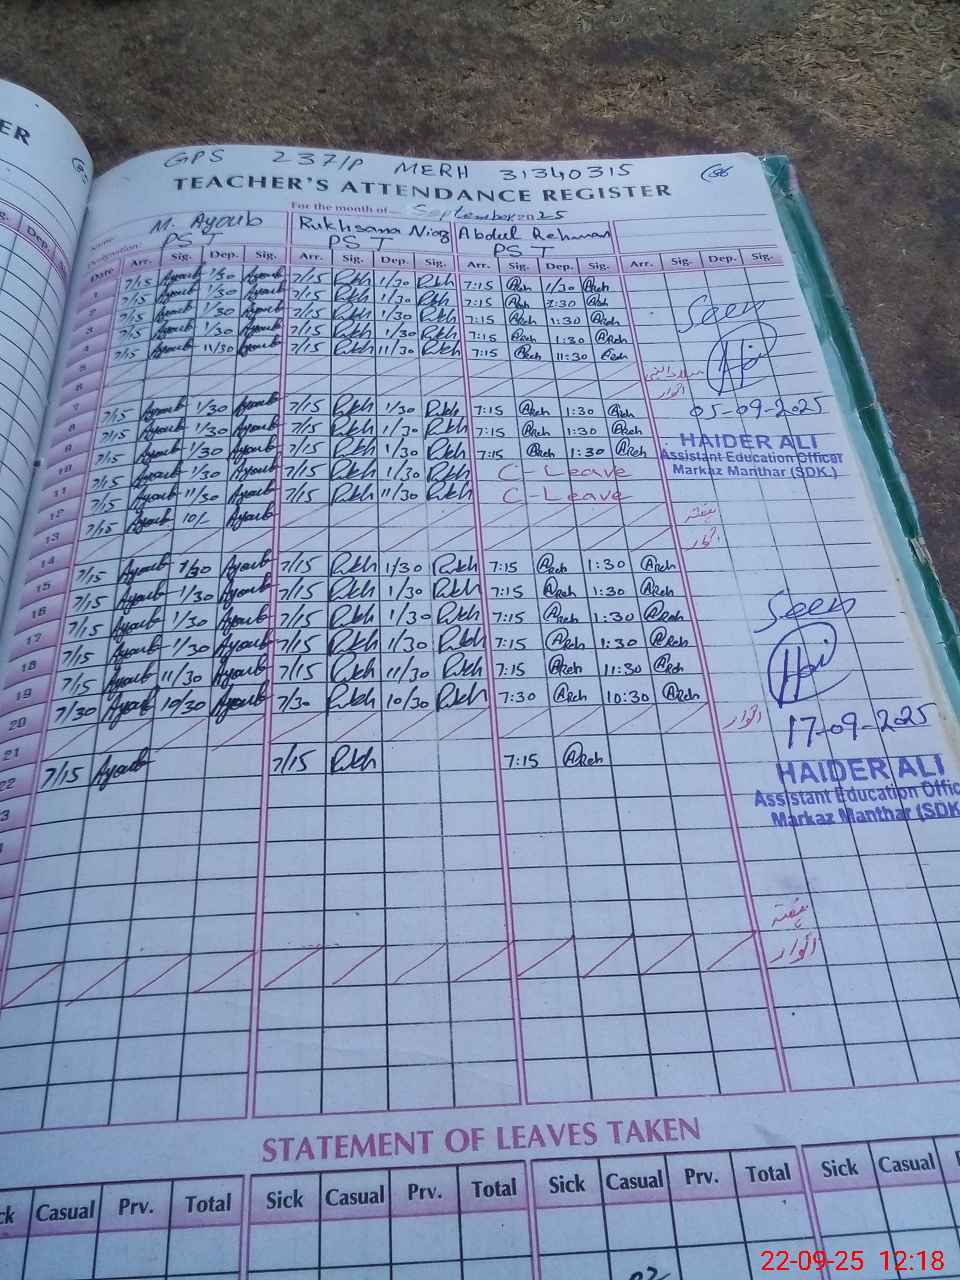 ER
GPS 237/P MERH 31340315
TEACHER'S ATTENDANCE REGISTER
For the month of September 2025
Name: M. Ayoub Rukhsana Niaz Abdul Rehman
Designation: PST PST PST
Date Arr. Sig. Dep. Sig. Arr. Sig. Dep. Sig. Arr. Sig. Dep. Sig. Arr. Sig. Dep. Sig.
1 7/15 Ayoub 1/30 Ayoub 7/15 Rukh 1/30 Rukh 7:15 @Reh 1:30 @Reh
2 7/15 Ayoub 1/30 Ayoub 7/15 Rukh 1/30 Rukh 7:15 @Reh 1:30 @Reh
3 7/15 Ayoub 1/30 Ayoub 7/15 Rukh 1/30 Rukh 7:15 @Reh 1:30 @Reh
4 7/15 Ayoub 1/30 Ayoub 7/15 Rukh 1/30 Rukh 7:15 @Reh 1:30 @Reh
5 7/15 Ayoub 11/30 Ayoub 7/15 Rukh 11/30 Rukh 7:15 @Reh 11:30 @Reh
6
7 اتوار
8 7/15 Ayoub 1/30 Ayoub 7/15 Rukh 1/30 Rukh 7:15 @Reh 1:30 @Reh
9 7/15 Ayoub 1/30 Ayoub 7/15 Rukh 1/30 Rukh 7:15 @Reh 1:30 @Reh
10 7/15 Ayoub 1/30 Ayoub 7/15 Rukh 1/30 Rukh 7:15 @Reh 1:30 @Reh
11 7/15 Ayoub 1/30 Ayoub 7/15 Rukh 1/30 Rukh C-Leave
12 7/15 Ayoub 11/30 Ayoub 7/15 Rukh 11/30 Rukh C-Leave
13 7/15 Ayoub 10/- Ayoub ہفتہ
14 اتوار
15 7/15 Ayoub 1/30 Ayoub 7/15 Rukh 1/30 Rukh 7:15 @Reh 1:30 @Reh
16 7/15 Ayoub 1/30 Ayoub 7/15 Rukh 1/30 Rukh 7:15 @Reh 1:30 @Reh
17 7/15 Ayoub 1/30 Ayoub 7/15 Rukh 1/30 Rukh 7:15 @Reh 1:30 @Reh
18 7/15 Ayoub 1/30 Ayoub 7/15 Rukh 1/30 Rukh 7:15 @Reh 1:30 @Reh
19 7/15 Ayoub 11/30 Ayoub 7/15 Rukh 11/30 Rukh 7:15 @Reh 11:30 @Reh
20 7/30 Ayoub 10/30 Ayoub 7/30 Rukh 10/30 Rukh 7:30 @Reh 10:30 @Reh
21 اتوار
22 7/15 Ayoub 7/15 Rukh 7:15 @Reh
Seen
05-09-2025
HAIDER ALI
Assistant Education Officer
Markaz Manthar (SDK.)
Seen
17-09-2025
HAIDER ALI
Assistant Education Offic
Markaz Manthar (SDK
ہفتہ
اتوار
STATEMENT OF LEAVES TAKEN
ck Casual Prv. Total Sick Casual Prv. Total Sick Casual Prv. Total Sick Casual
02
22-09-25 12:18